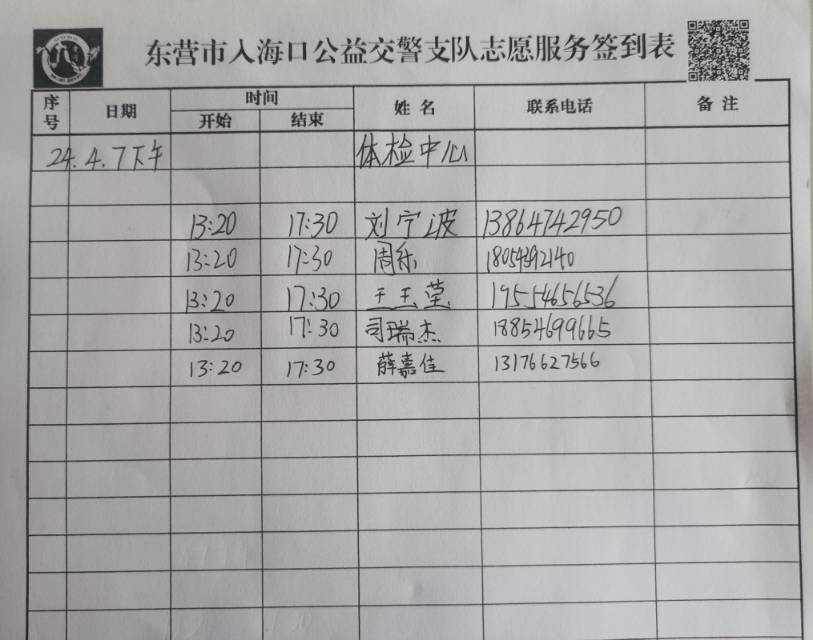 东营市入海口公益交警支队志愿服务签到表
序号 日期 时间 开始 结束 姓名 联系电话 备注
24.4.7下午 体检中心
13:20 17:30 刘宁波 13864742950
13:20 17:30 周乐 18054392140
13:20 17:30 王玉莹 19554656536
13:20 17:30 司瑞杰 18854699665
13:20 17:30 薛嘉佳 13176627566